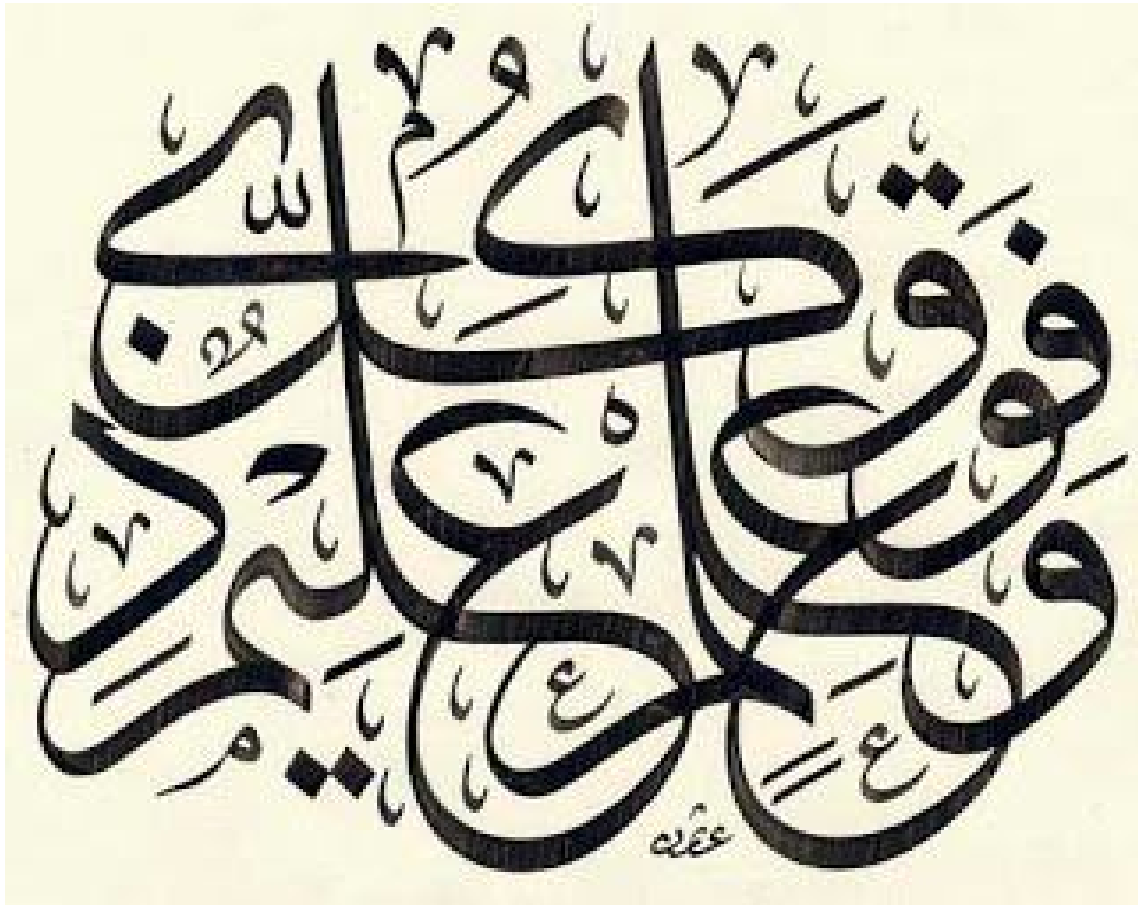 وَفَوْقَ كُلِّ ذِي عِلْمٍ عَلِيمٌ